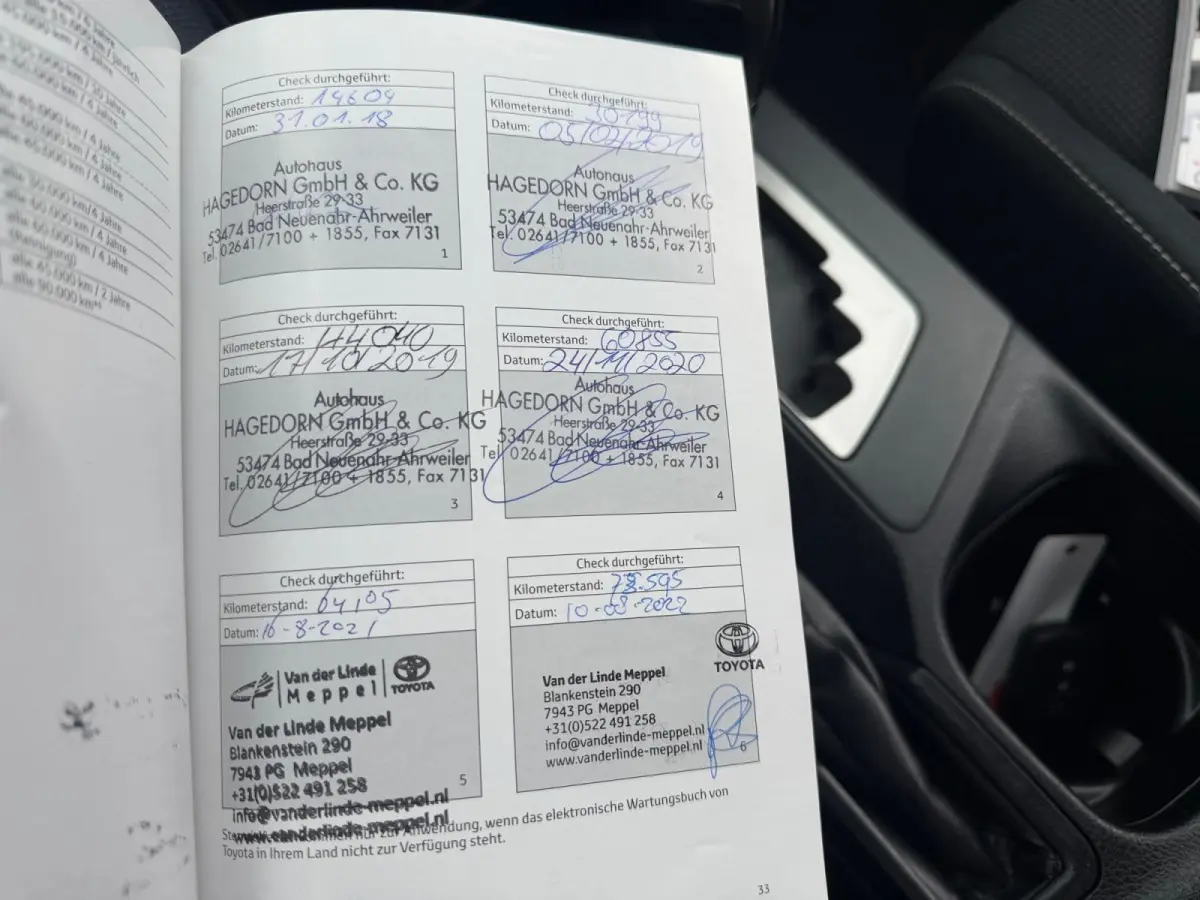 alle 45.000 km / 4 Jahre
alle 60.000 km / 4 Jahre
alle 45.000 km / 4 Jahre
alle 30.000 km/6 Jahre
alle 60.000 km / 4 Jahre
alle 60.000 km / 4 Jahre
(Reinigung)
alle 45.000 km / 2 Jahre
alle 90.000 km
Check durchgeführt:
Kilometerstand: 14604
Datum: 31.01.18
Autohaus
HAGEDORN GmbH & Co. KG
Heerstraße 29-33
53474 Bad Neuenahr-Ahrweiler
Tel. 02641/7100 + 1855, Fax 7131
1
Check durchgeführt:
Kilometerstand: 30199
Datum: 05/02/2019
Autohaus
HAGEDORN GmbH & Co. KG
Heerstraße 29-33
53474 Bad Neuenahr-Ahrweiler
Tel. 02641/7100 + 1855, Fax 7131
2
Check durchgeführt:
Kilometerstand: 44040
Datum: 17/10/2019
Autohaus
HAGEDORN GmbH & Co. KG
Heerstraße 29-33
53474 Bad Neuenahr-Ahrweiler
Tel. 02641/7100 + 1855, Fax 7131
3
Check durchgeführt:
Kilometerstand: 60855
Datum: 24/11/2020
Autohaus
HAGEDORN GmbH & Co. KG
Heerstraße 29-33
53474 Bad Neuenahr-Ahrweiler
Tel. 02641/7100 + 1855, Fax 7131
4
Check durchgeführt:
Kilometerstand: 64105
Datum: 16-8-2021
Van der Linde
Meppel
TOYOTA
Van der Linde Meppel
Blankenstein 290
7943 PG Meppel
+31(0)522 491 258
info@vanderlinde-meppel.nl
www.vanderlinde-meppel.nl
5
Check durchgeführt:
Kilometerstand: 78.595
Datum: 10-08-2022
TOYOTA
Van der Linde Meppel
Blankenstein 290
7943 PG Meppel
+31(0)522 491 258
info@vanderlinde-meppel.nl
www.vanderlinde-meppel.nl
6
nur zur Anwendung, wenn das elektronische Wartungsbuch von
Toyota in Ihrem Land nicht zur Verfügung steht.
33